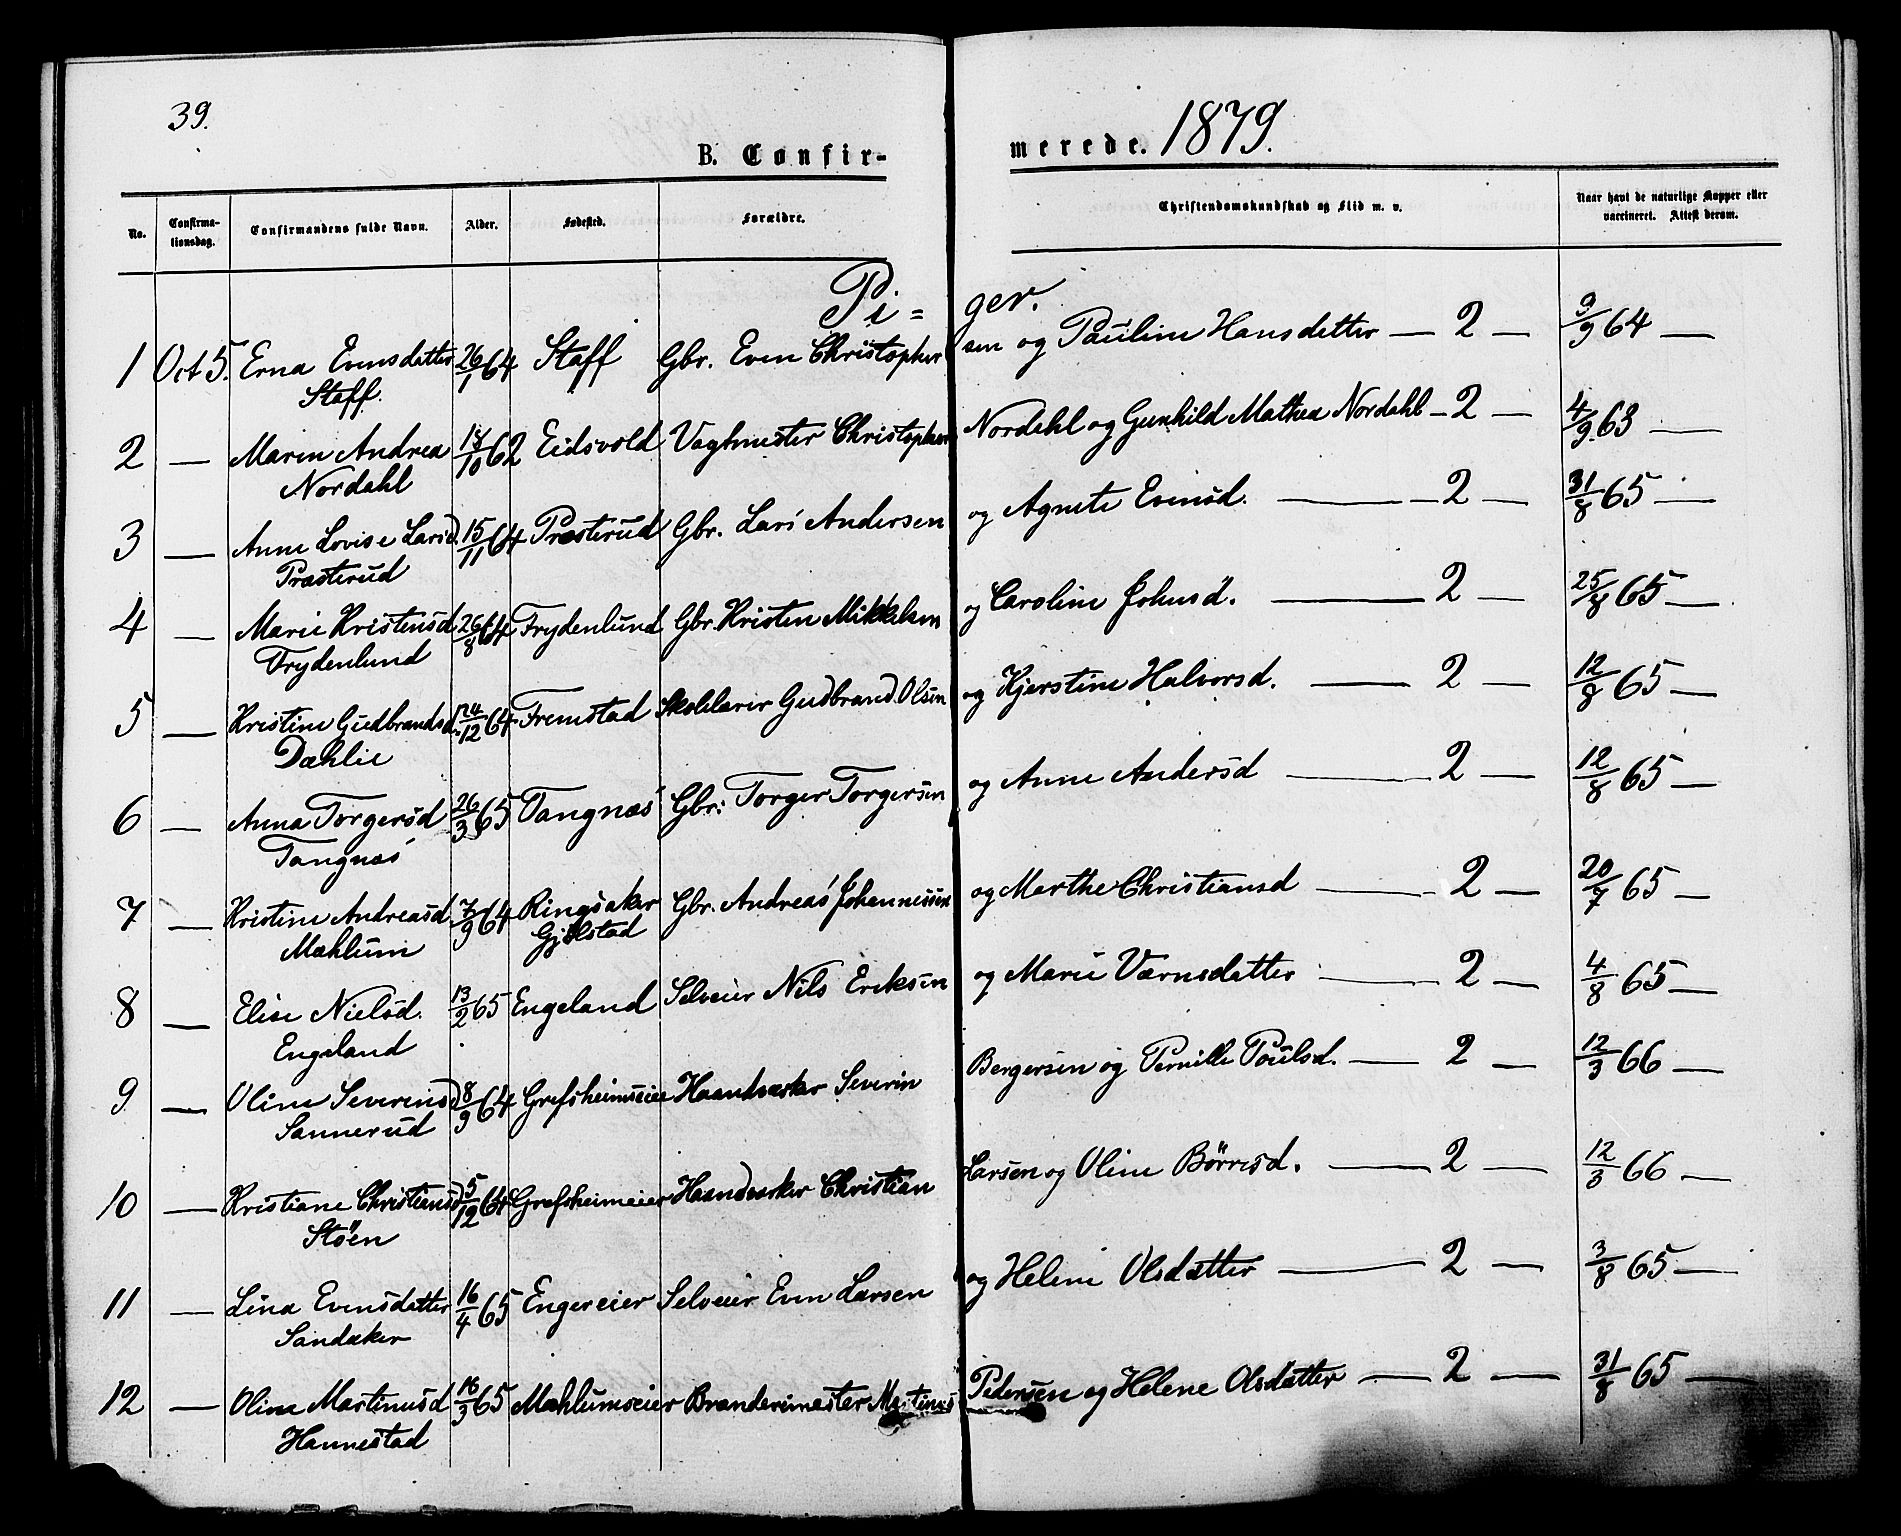 39.
B. Confir-
merede. 1879.
No. Confirma-tionsdag. Confirmandens fulde Navn. Alder. Fødested. Forældre. Christendomskundskab og Flid m. v. Naar havt de naturlige Kopper eller vaccineret. Attest derom.
Pi=ger.
1 Oct 5. Erna Evensdatter 26/1 64 Staff Gbr. Even Christophersen og Pauline Hansdatter — 2 — 9/9 64 —
Staff.
2 — Maren Andrea 18/10 62 Eidsvold Vagtmester Christopher Nordahl og Gunhild Mathea Nordahl - 2 — 4/9 63 —
Nordahl
3 — Anne Lovise Larsd. 15/11 64 Præsterud Gbr. Lars Andersen og Agnete Evensd. — 2 — 31/8 65 —
Præsterud
4 — Marie Kristensd. 26/8 64 Frydenlund Gbr. Kristen Mikkelsen og Caroline Johnsd. — 2 — 25/8 65 —
Frydenlund
5 — Kristine Gudbrandsd. 24/12 64 Fremstad Skolelærer Gudbrand Olsen og Kjerstine Halvorsd. — 2 — 12/8 65 —
Dæhlie
6 — Anna Torgersd 26/3 65 Tangnæs Gbr. Torger Torgersen og Anne Andersd — 2 — 12/8 65 —
Tangnæs
7 — Kristine Andreasd. 7/9 64 Ringsaker Gbr. Andreas Johannessen og Marthe Christiansd — 2 — 20/7 65 —
Mæhlum Gjølstad
8 — Elise Nielsd. 13/2 65 Engeland Selveier Nils Eriksen og Marie Værnsdatter — 2 — 4/8 65 —
Engeland
9 — Oline Severinsd 8/9 64 Grefsheimseier Haandværker Severin Bergersen og Pernille Poulsd. — 2 — 12/3 66 —
Sannerud
10 — Kristiane Christiansd 5/12 64 Grefsheimeier Haandværker Christian Larsen og Oline Børresd. — 2 — 12/3 66 —
Støen
11 — Lina Evensdatter 16/4 65 Engereier Selveier Even Larsen og Helene Olsdatter — 2 — 3/8 65 —
Sandaker
12 — Oline Martinusd 18/3 65 Mæhlumseier Branderimester Martinus Pedersen og Helene Olsdatter — 2 — 31/8 65 —
Hannestad